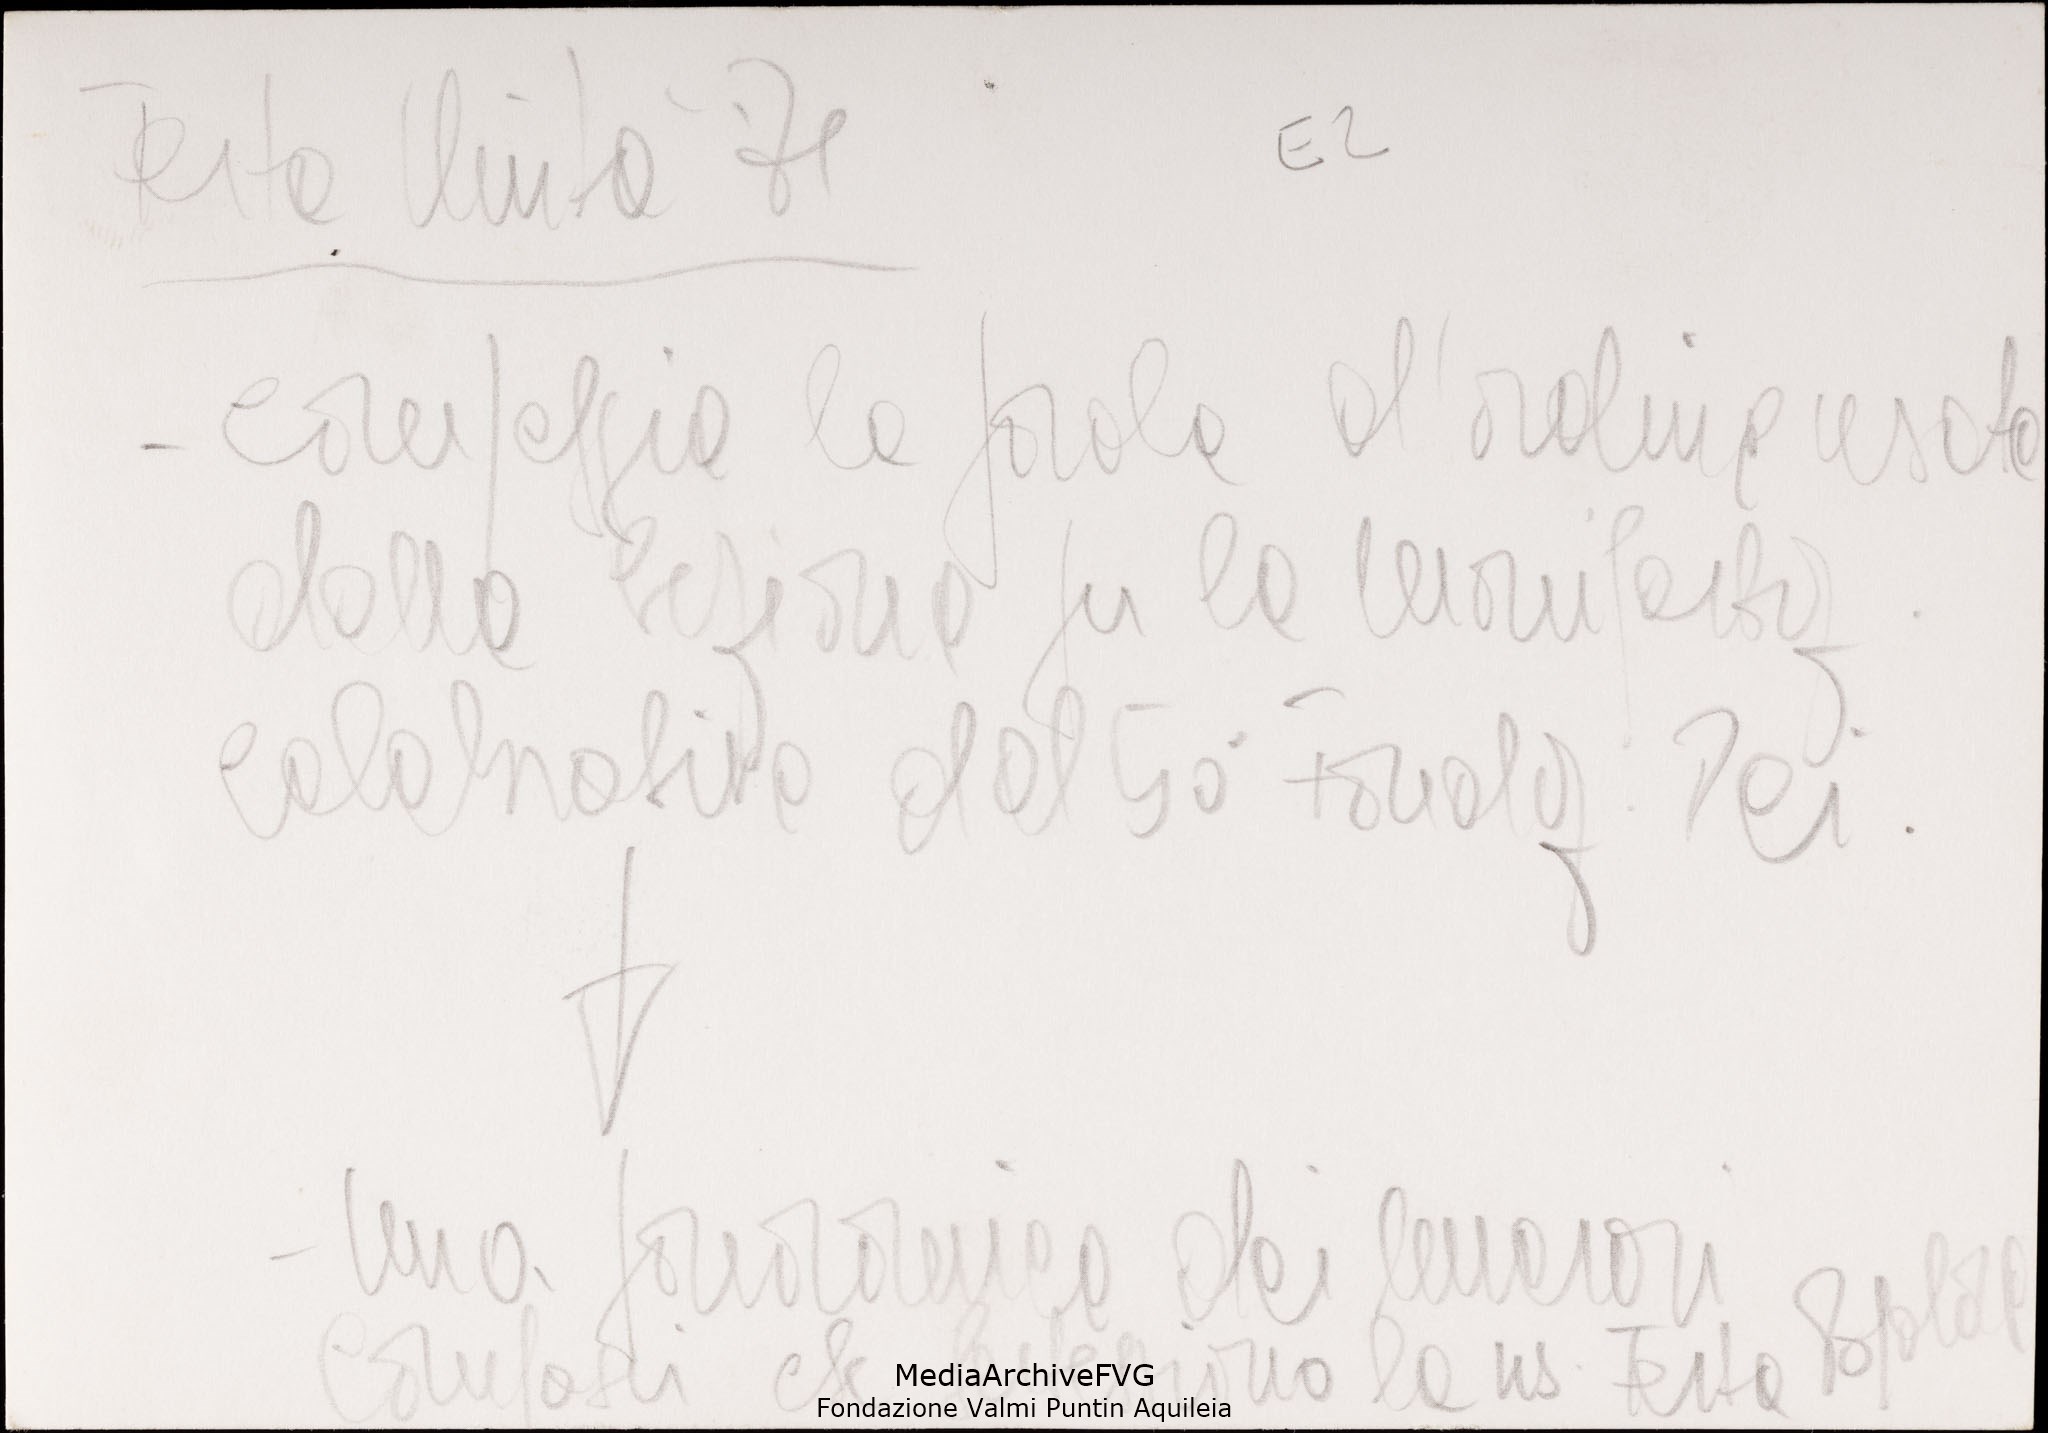 Festa Unità 71
E2
- campeggia la parola d'ordine usata
dalla Sezione per la manifestaz.
celebrativa del 50° Fondaz. Pci.
- una panoramica dei numerosi
compagni che la ns. Festa Popolare
MediaArchiveFVG
Fondazione Valmi Puntin Aquileia